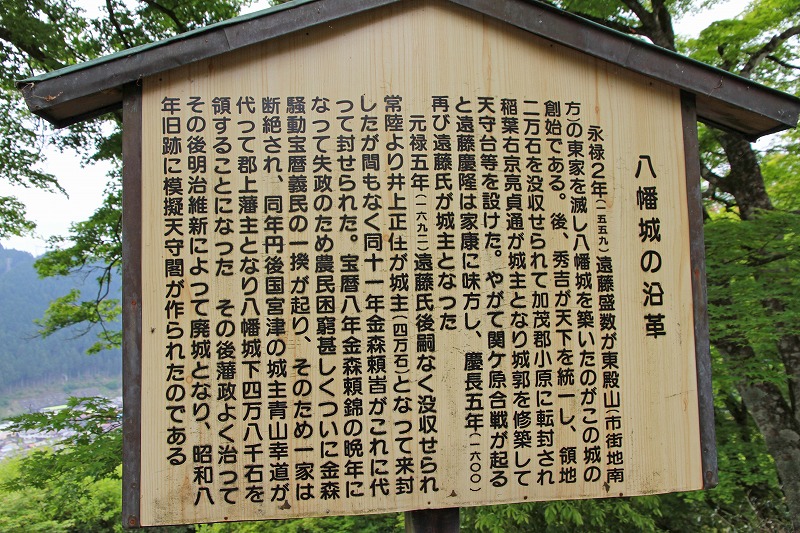 八幡城の沿革
永禄２年（一五五九）遠藤盛数が東殿山（市街地南
方）の東家を滅し八幡城を築いたのがこの城の
創始である。後、秀吉が天下を統一し、領地
二万石を没収せられて加茂郡小原に転封され
稲葉右京亮貞通が城主となり城郭を修築して
天守台等を設けた。やがて関ケ原合戦が起る
と遠藤慶隆は家康に味方し、慶長五年（一六〇〇）
再び遠藤氏が城主となった
元禄五年（一六九二）遠藤氏後嗣なく没収せられ
常陸より井上正任が城主（四万石）となって来封
したが間もなく同十一年金森頼旹がこれに代
って封せられた。宝暦八年金森頼錦の晩年に
なって失政のため農民困窮甚しくついに金森
騒動宝暦義民の一揆が起り、そのため一家は
断絶され、同年丹後国宮津の城主青山幸道が
代って郡上藩主となり八幡城下四万八千石を
領することになった　その後藩政よく治って
その後明治維新によって廃城となり、昭和八
年旧跡に模擬天守閣が作られたのである